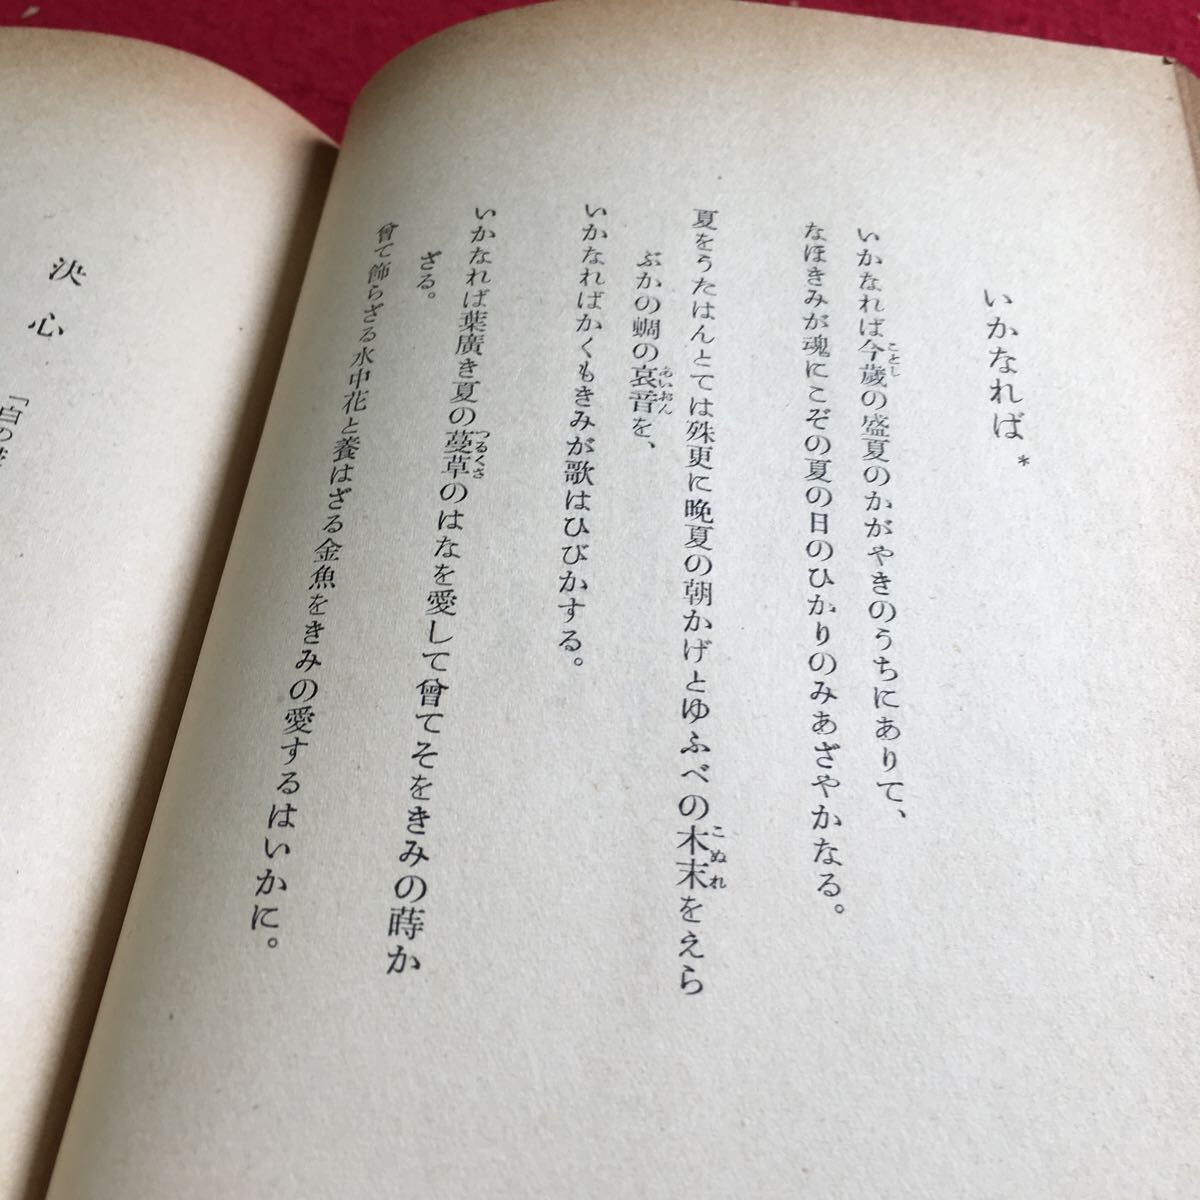 いかなれば*
いかなれば今歳の盛夏のかがやきのうちにありて、
なほきみが魂にこぞの夏の日のひかりのみあざやかなる。
夏をうたはんとては殊更に晩夏の朝かげとゆふべの木末をえら
ぶかの蜩の哀音を、
いかなればかくもきみが歌はひびかする。
いかなれば葉廣き夏の蔓草のはなを愛して曾てそをきみの蒔か
ざる。
曾て飾らざる水中花と養はざる金魚をきみの愛するはいかに。
決心
「白の